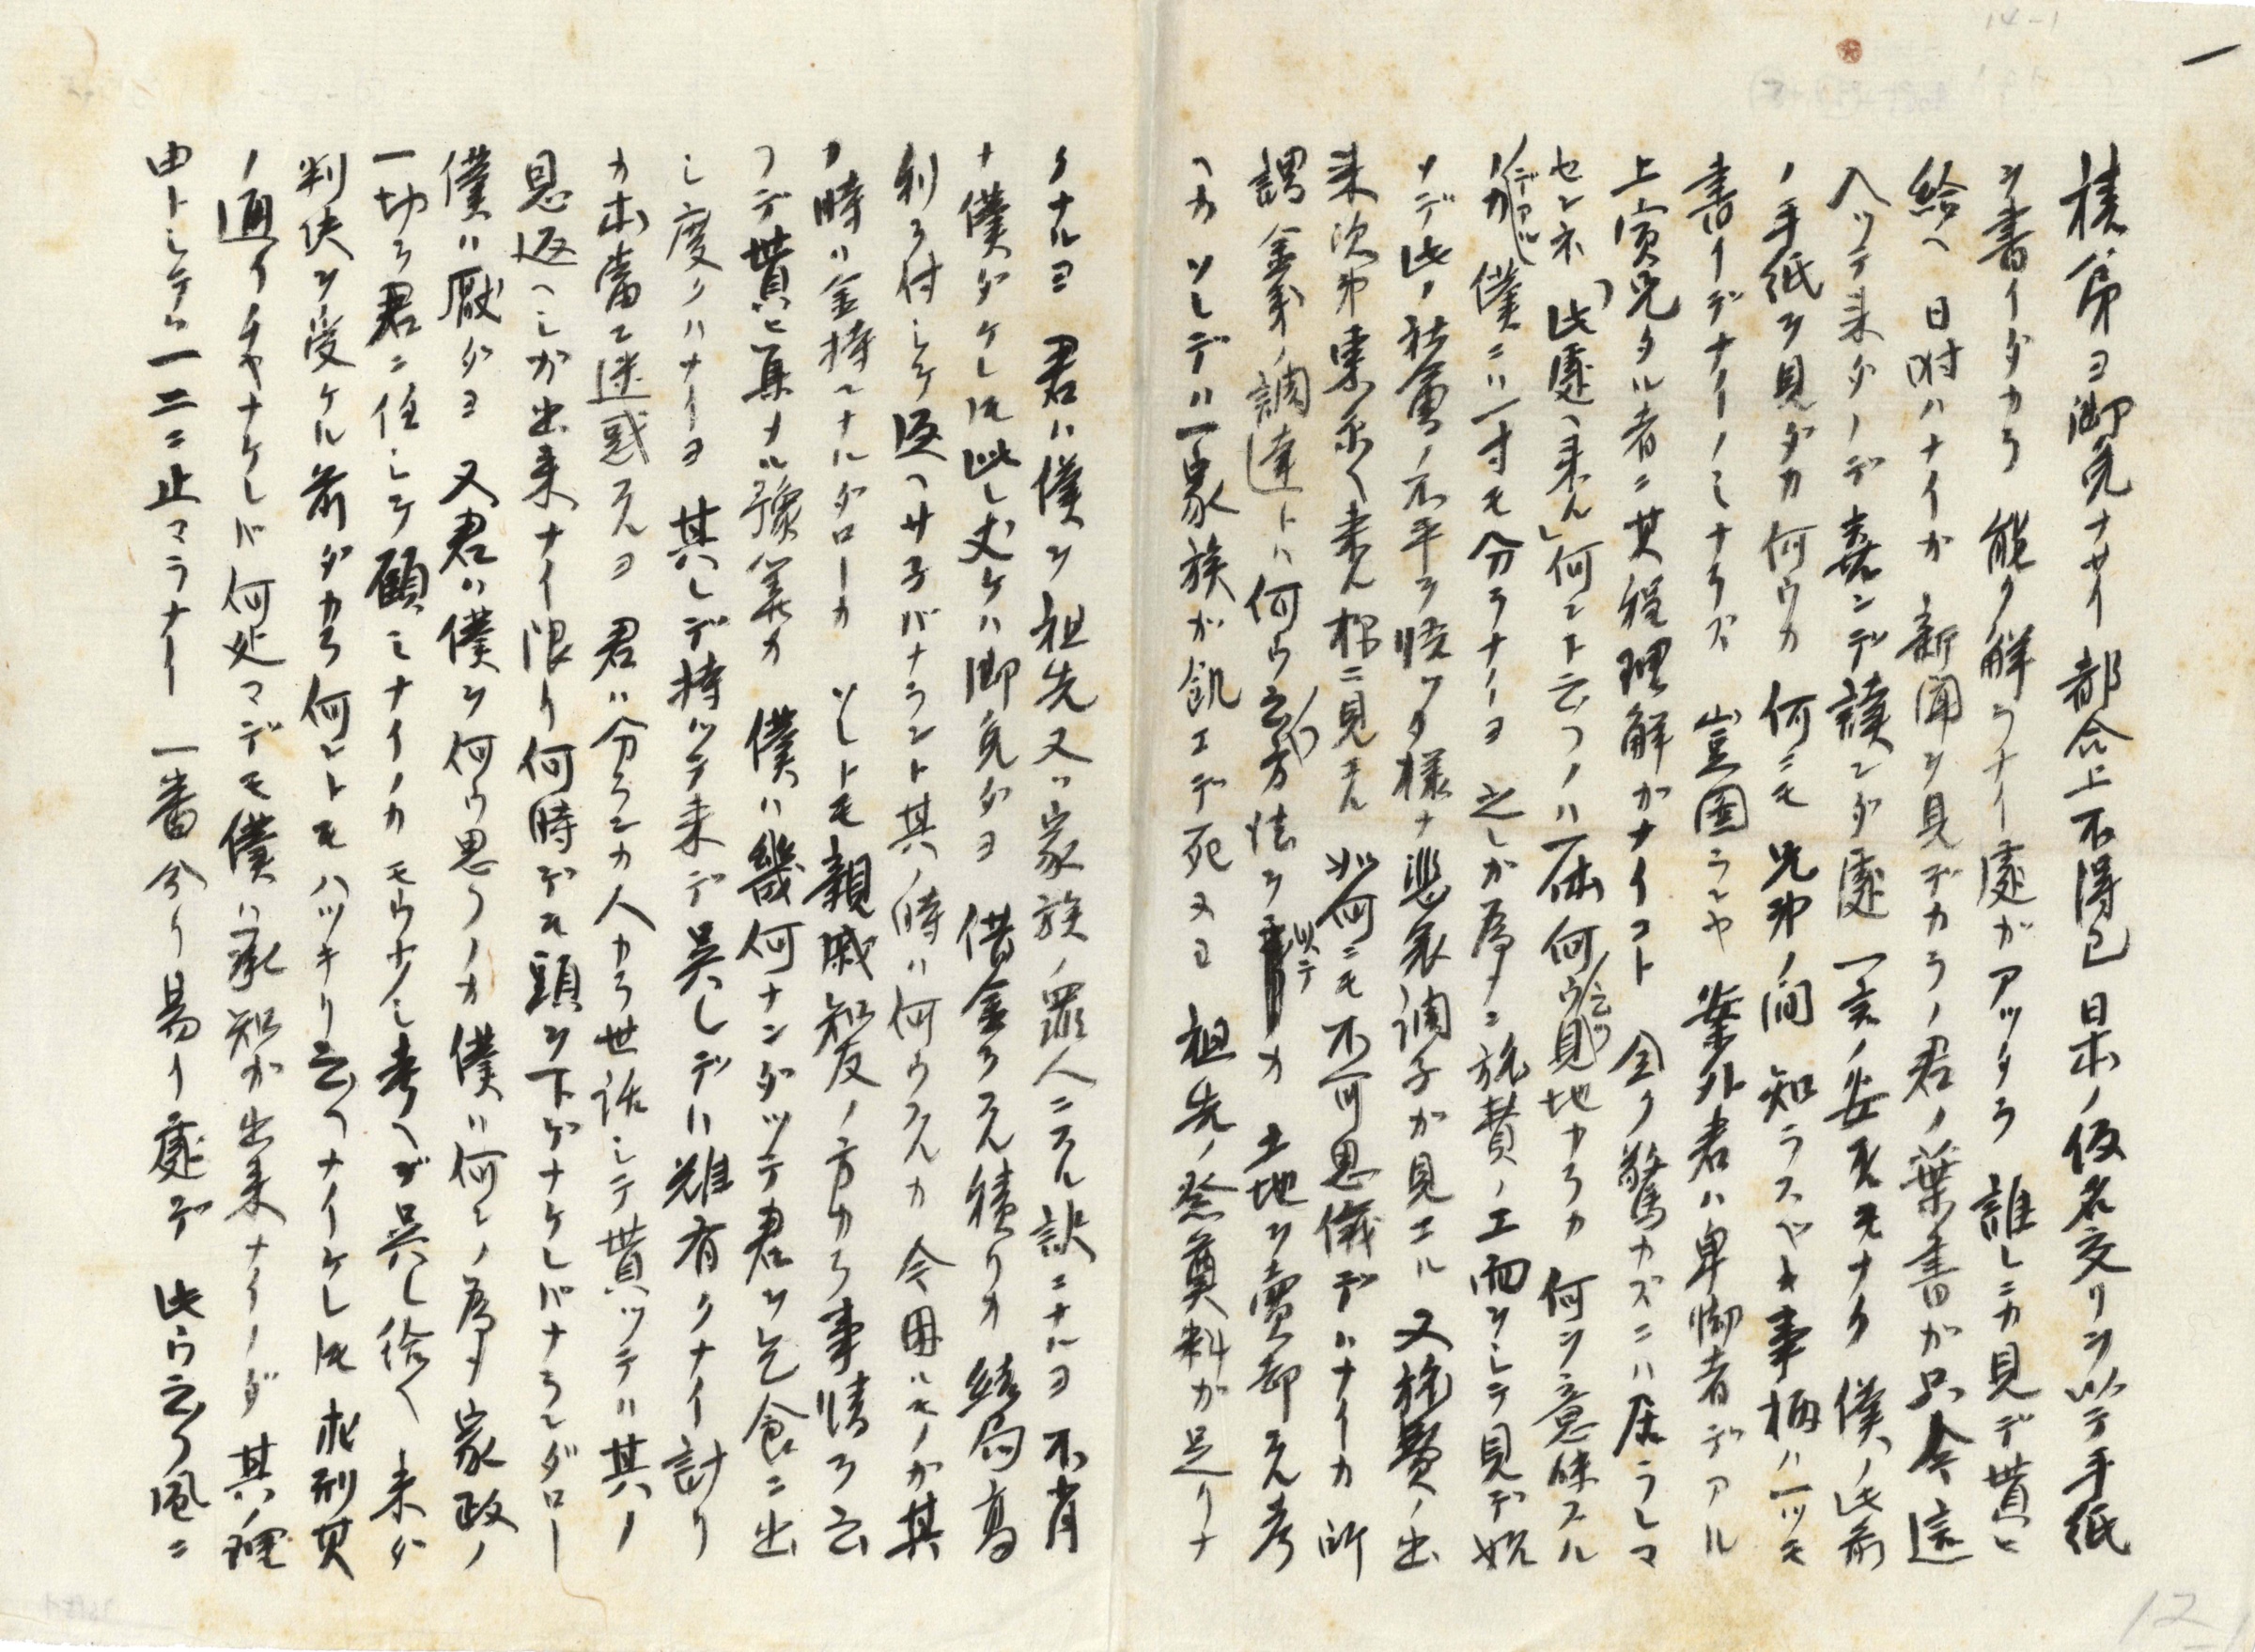 一
14-1
桂弟ヨ御免ナサイ 都合上不得已 日本ノ仮名交リヲ以テ手紙
ヲ書イダカラ 能ク解ラナイ處ガアッタラ 誰レニカ見デ貰ヒ
給ヘ 日附ハナイガ 新聞ヲ見デカラノ君ノ葉書ガ只今這
入ッテ来タノデ喜ンデ讀ンダ處 一言ノ安否モナク 僕ノ此前
ノ手紙ヲ見ダカ何ウカ 何ニモ兄弟ノ間知ラスベキ事柄ハ一ツモ
書イデナイノミナラズ 豈圖ランヤ 案外君ハ卑怯者デアル
上寅兄タル者ニ其程理解ガナイコト 全ク驚カズニハ居ラレマ
センネ 「此處ヘ来ル」何ント云フノハ一体何ウ云フ見地カラカ 何ヲ意味スル
ノデアルカ 僕ニハ一寸モ分ラナイヨ 之レガ為メニ旅費ノ工面ヲシテ見デ如何
ノデ此ノ社會ノ不平ヲ悟ッタ様ナ悲哀調子ガ見エル 又旅費ノ出
来次第東京ヘ来ル様ニ見エル 如何ニモ不可思儀デハナイカ 所
謂金策ノ調達トハ何ウ云フ方法ヲ以テカ 土地ヲ賣却スル考
ヘカ ソレデハ一家族ガ飢エデ死ヌヨ 祖先ノ祭奠料ガ足リナ
クナルヨ 君ハ僕ヲ祖先又ハ家族ノ罪人ニスル訳ニナルヨ 不肖
ナ僕ダケレ圧此レ丈ケハ御免ダヨ 借金ヲスル積リカ 結局高
利ヲ付ケテ返ヘサネバナラント其ノ時ハ何ウスルカ 今困ルモノガ其
ノ時ハ金持ニナルダローカ ソレトモ親戚知友ノ方カラ事情ヲ云
フデ貰ヒ集メル豫算カ 僕ハ幾何ナンダッテ君ヲ乞食ニ出
シ度クハナイヨ 其レデ持ッテ来デ呉レデハ難有クナイ討リ
カ本當ニ迷惑スルヨ 君ハ分ランカ人カラ世話シテ貰ッテハ其ノ
恩返ヘシガ出来ナイ限リ何時デモ頭ヲ下ゲナケレバナランダロー
僕ハ厭ダヨ 又君ハ僕ヲ何ウ思ウノカ僕ハ何ンノ為メ家政ノ
一切ヲ君ニ任シテ顧ミナイノカモウ少シ考ヘデ呉レ給ヘ 未ダ
判決ヲ受ケル前ダカラ何ントモハッキリ云ヘナイケレ圧 求刑其
ノ通イチャナケレバ何処マデモ僕ハ承知ガ出来ナイノダ 其ノ理
由トシテハ一二ニ止マラナイ 一番分リ易イ處デ 此ウ云フ風ニ
12